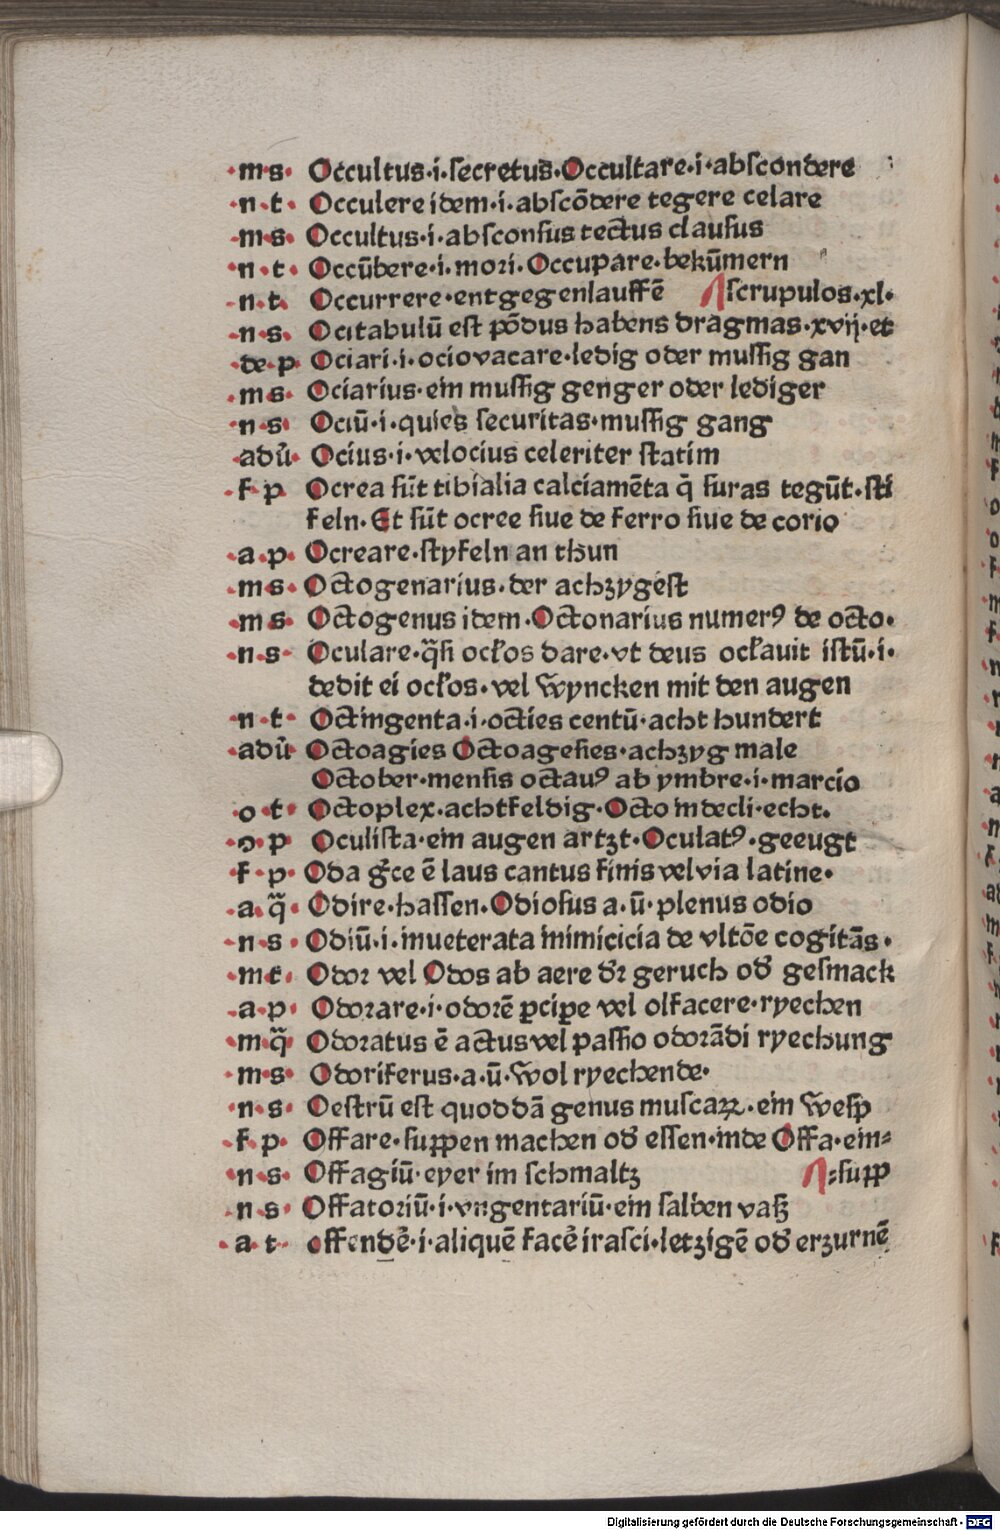 ·m·s· Occultus·i·ſecretus·Occultare·i·abſcondere
·n·t· Occulere idem·i·abſcōdere tegere celare
·m·s· Occultus·i·abſconſus tectus clauſus
·n·t· Occūbere·i·mori·Occupare·bekūmern
·n·t· Occurrere·entgegenlauffē ſcrupulos·xl·
·n·s· Ocitabulū eſt pōdus habens dragmas·xvij·et
·de·p· Ociari·i·ociovacare·ledig oder muſſig gan
·m·s· Ociarius·ein muſſig genger oder lediger
·n·s· Ociū·i·quies ſecuritas·muſſig gang
·adū· Ocius·i·velocius celeriter ſtatim
·f·p· Ocrea ſūt tibialia calciamēta q̄ ſuras tegūt·ſti
feln·Et ſūt ocree ſiue de ferro ſiue de corio
·a·p· Ocreare·ſtyfeln an thun
·m·s· Octogenarius·der achʒygeſt
·m·s· Octogenus idem·Octonarius numerꝰ de octo·
·n·s· Oculare·q̄ſi ockos dare·vt deus ockauit iſtū·i·
dedit ei ockos·vel wyncken mit den augen
·n·t· Octingenta·i·octies centū·acht hundert
·adū· Octoagies Octoageſies·achʒyg male
October·menſis octauꝰ ab ymbre·i·marcio
·o·t· Octoplex·achtfeldig·Octo indecli·echt·
·o·p· Oculiſta·ein augen artʒt·Oculatꝰ·geeugt
·f·p· Oda gc̄e ē laus cantus finis vel via latine·
·a·q̄· Odire·haſſen·Odioſus a·ū·plenus odio
·n·s· Odiū·i·inueterata inimicicia de vltōe cogitās·
·m·t· Odor vel Odos ab aere dr̄ geruch od̄ geſmack
·a·p· Odorare·i·odorē ꝑcipe vel olfacere·ryechen
·m·q̄· Odoratus ē actus vel paſſio odorādi ryechung
·m·s· Odoriferus·a·ū·wol ryechende·
·n·s· Oeſtrū eſt quoddā genus muſcaꝝ·ein weſp
·f·p· Offare·ſuppen machen od̄ eſſen·inde Offa·ein⸗
·n·s· Offagiū·eyer im ſchmaltʒ ⸗ſupp
·n·s· Offatoriū·i·vngentariū·ein ſalben vaß
·a·t· offendē̄·i·aliquē facē̄ iraſci·letʒigē od̄ erʒurnē
Digitalisierung gefördert durch die Deutsche Forschungsgemeinschaft · DFG